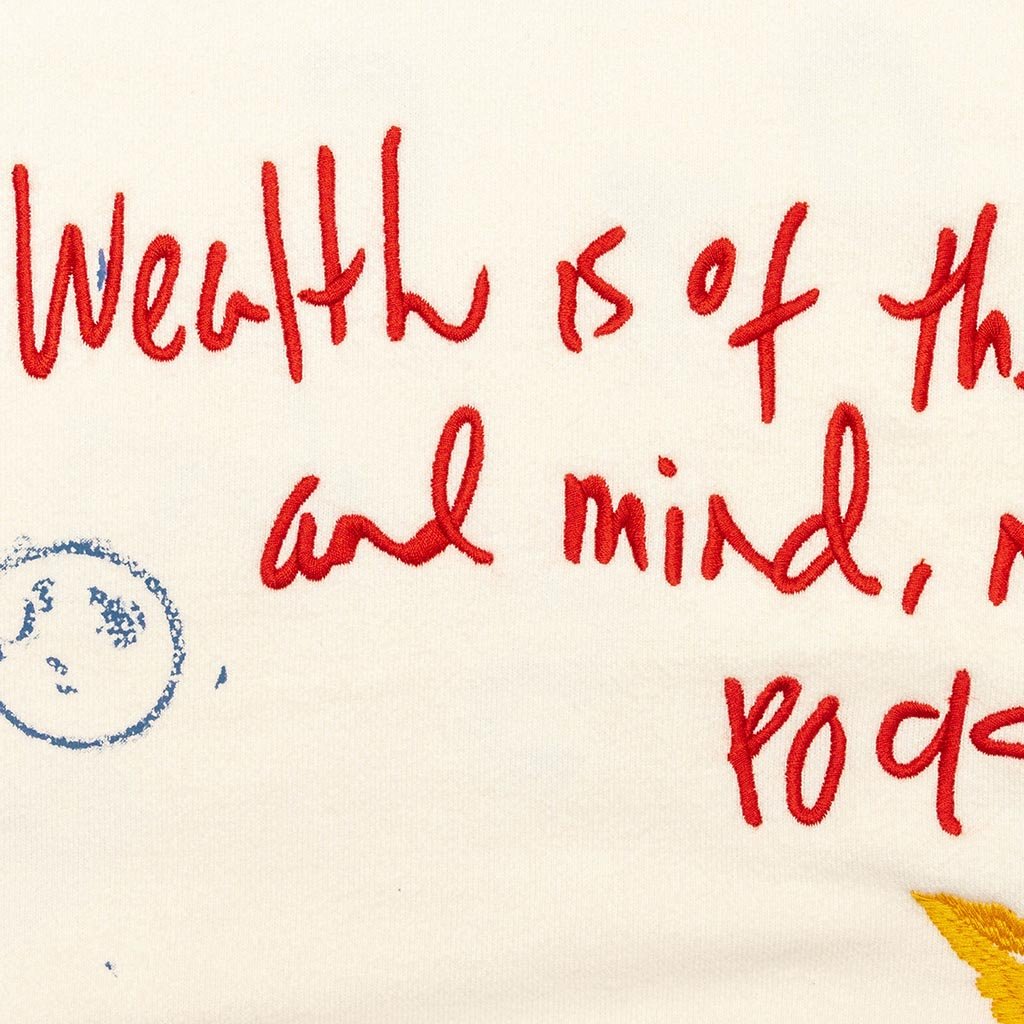 Wealth is of th
and mind,
pock